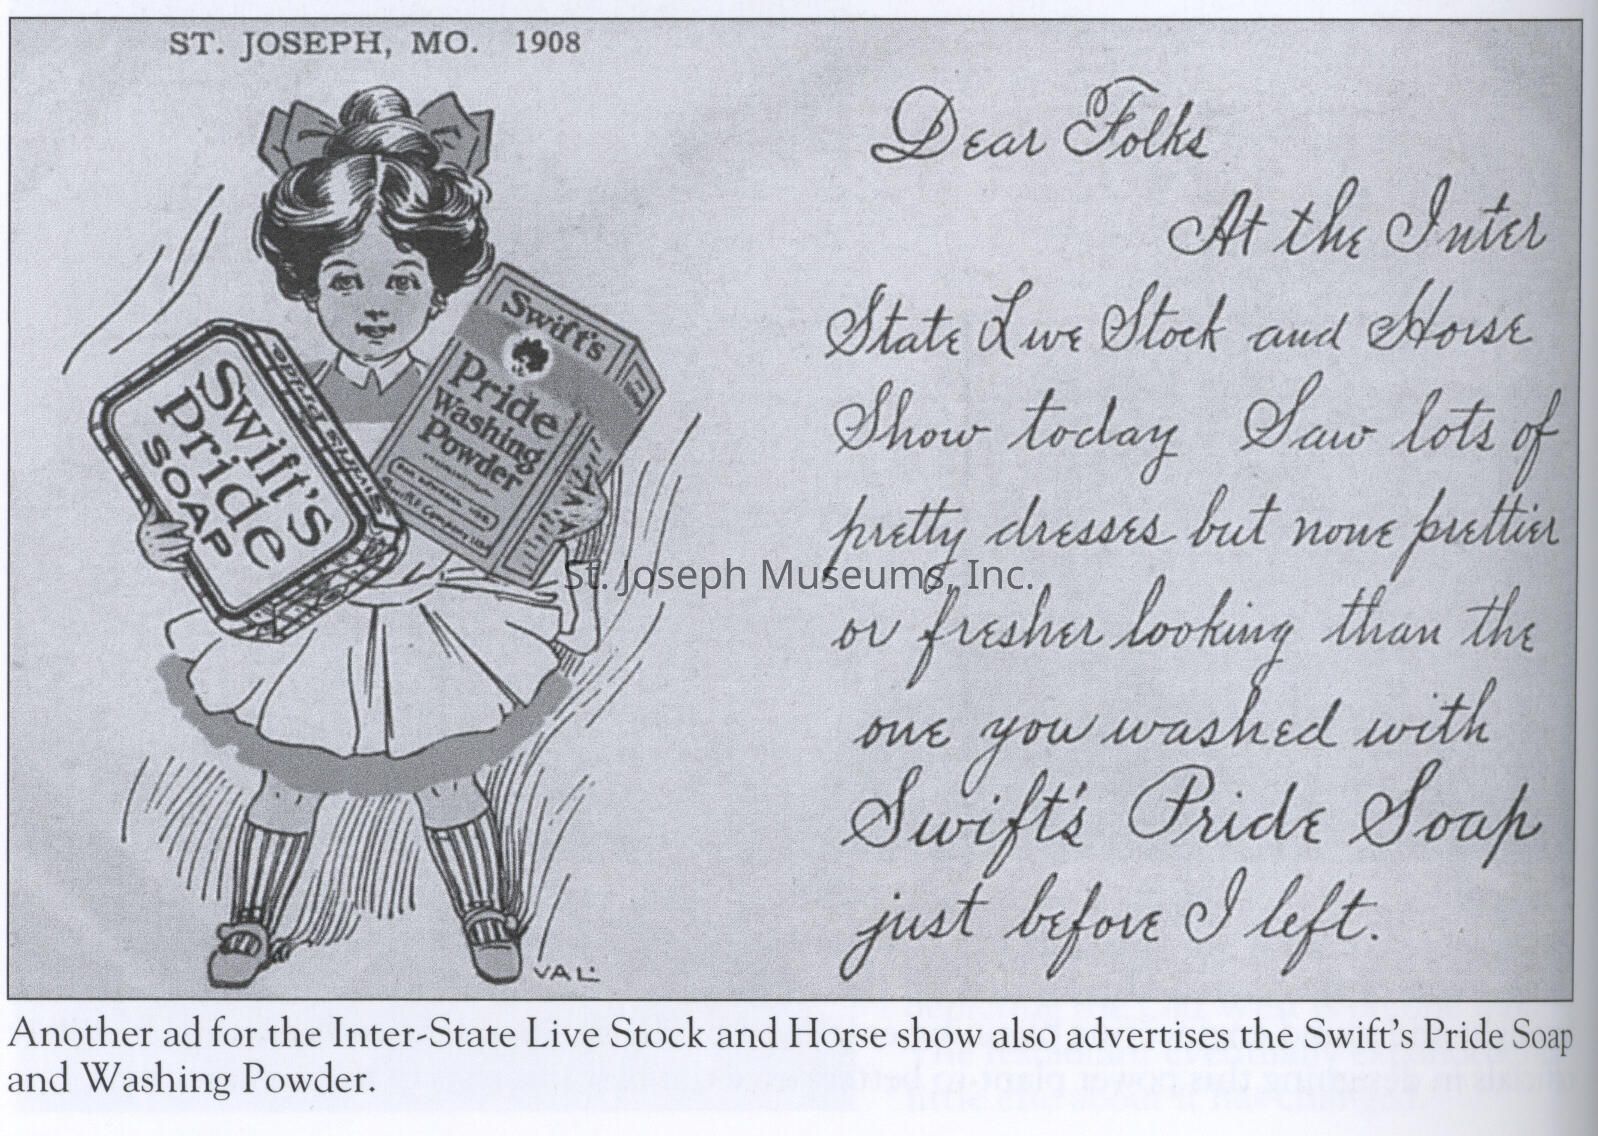 ST. JOSEPH, MO. 1908
Swift's
Pride
SOAP
Swift's Pride
Swift's
Pride
Washing
Powder
Swift & Company
Dear Folks
At the Inter
State Live Stock and Horse
Show today Saw lots of
pretty dresses but none prettier
or fresher looking than the
one you washed with
Swift's Pride Soap
just before I left.
VAL.
St. Joseph Museums, Inc.
Another ad for the Inter-State Live Stock and Horse show also advertises the Swift's Pride Soap
and Washing Powder.